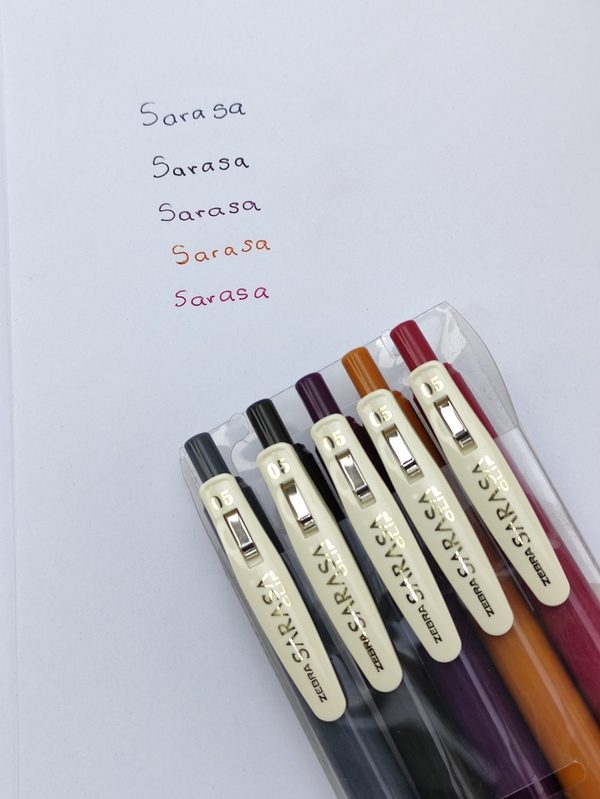 Sarasa
Sarasa
Sarasa
Sarasa
Sarasa
05
ZEBRA SARASA CLIP
05
ZEBRA SARASA CLIP
05
ZEBRA SARASA CLIP
05
ZEBRA SARASA CLIP
05
ZEBRA SARASA CLIP